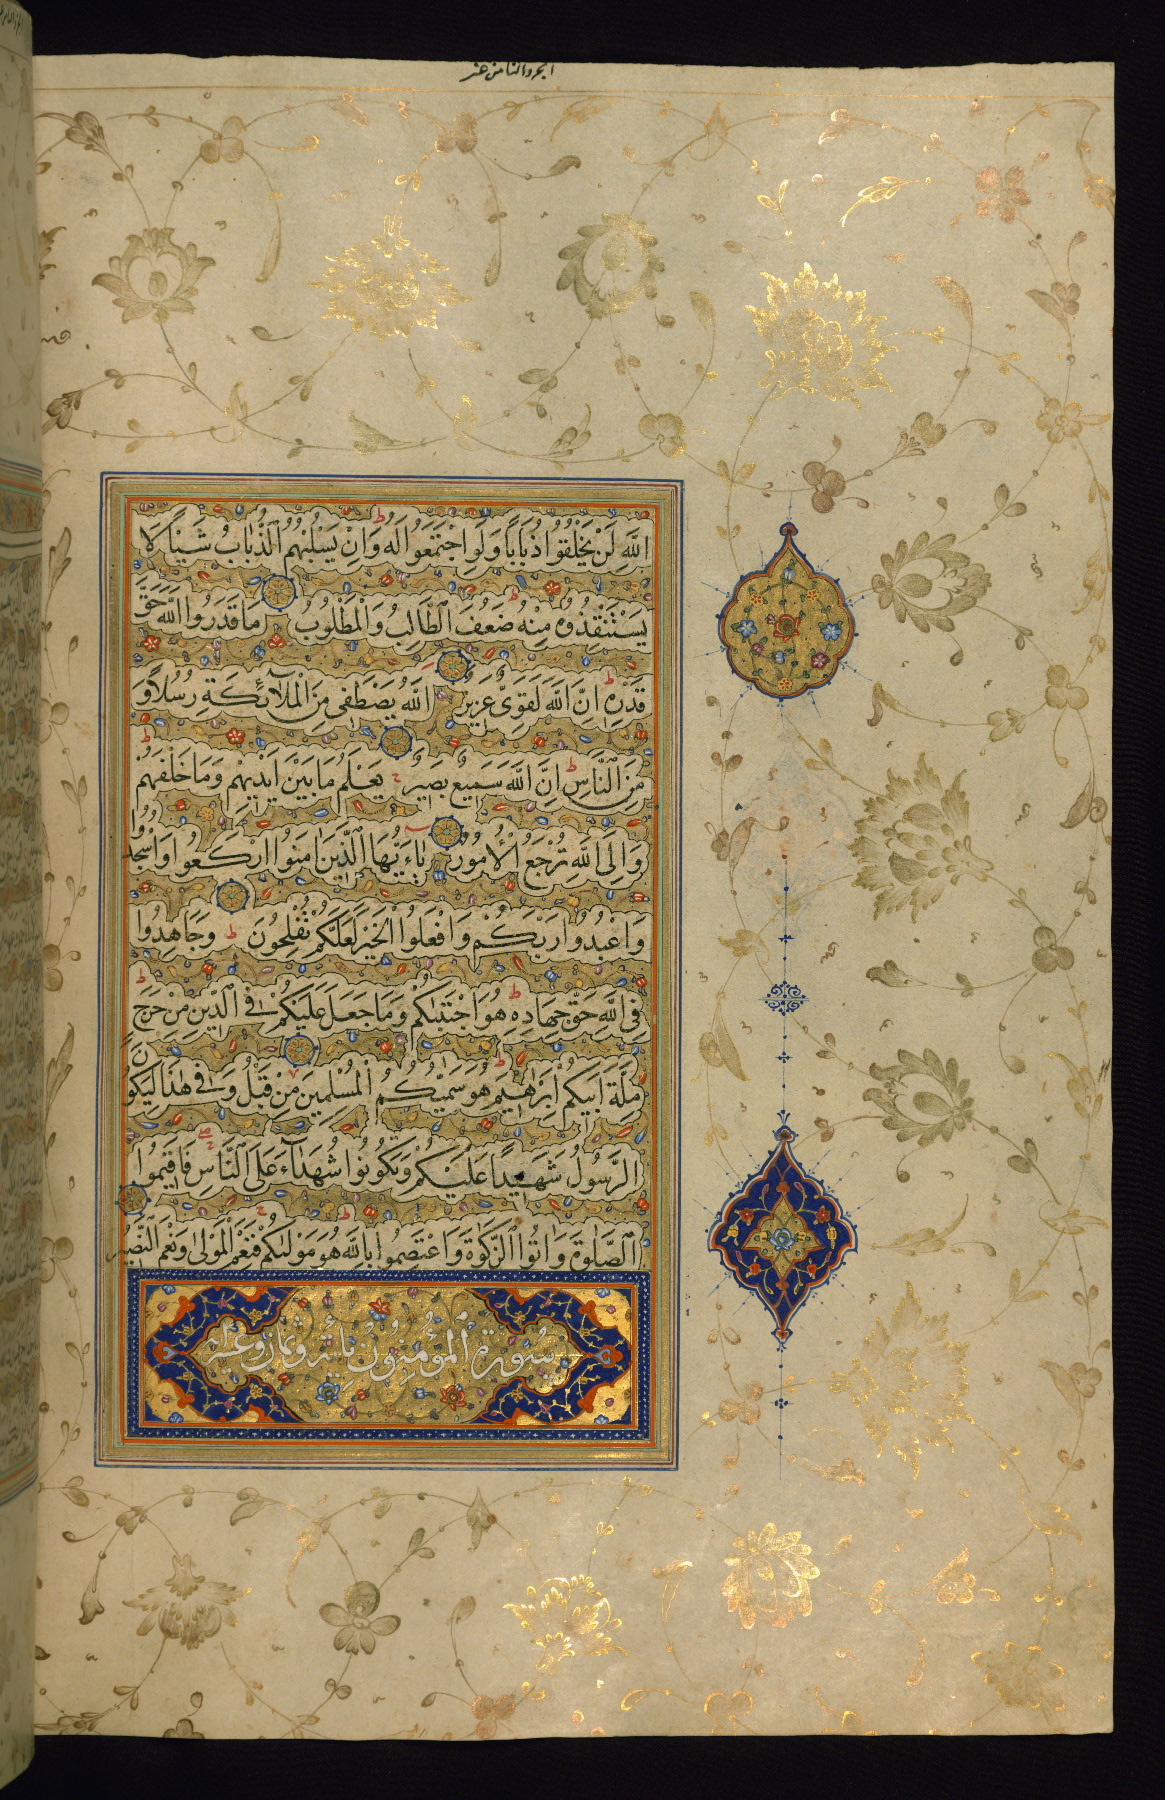 الجزو الثامن عشر
اللَّهِ لَنْ يَخْلُقُوا ذُبَابًا وَلَوِ اجْتَمَعُوا لَهُ ط وَاِنْ يَسْلُبْهُمُ الذُّبَابُ شَيْئًا لَا
يَسْتَنْقِذُوهُ مِنْهُ ط ضَعُفَ الطَّالِبُ وَالْمَطْلُوبُ مَا قَدَرُوا اللَّهَ حَقَّ
قَدْرِهِ ط اِنَّ اللَّهَ لَقَوِيٌّ عَزِيزٌ اللَّهُ يَصْطَفِي مِنَ الْمَلَآئِكَةِ رُسُلًا وَ
مِنَ النَّاسِ ط اِنَّ اللَّهَ سَمِيعٌ بَصِيرٌ ج يَعْلَمُ مَا بَيْنَ اَيْدِيهِمْ وَمَا خَلْفَهُمْ ط
وَاِلَى اللَّهِ تُرْجَعُ الْاُمُورُ يَاءَيُّهَا الَّذِينَ اٰمَنُوا ارْكَعُوا وَاسْجُدُوا
وَاعْبُدُوا رَبَّكُمْ وَافْعَلُوا الْخَيْرَ لَعَلَّكُمْ تُفْلِحُونَ ط وَجَاهِدُوا
فِي اللَّهِ حَقَّ جِهَادِهِ ط هُوَ اجْتَبٰىكُمْ وَمَا جَعَلَ عَلَيْكُمْ فِي الدِّينِ مِنْ حَرَجٍ ط
مِلَّةَ اَبِيكُمْ اِبْرٰهِيمَ ط هُوَ سَمّٰيكُمُ الْمُسْلِمِينَ مِنْ قَبْلُ وَفِي هٰذَا لِيَكُونَ
الرَّسُولُ شَهِيدًا عَلَيْكُمْ وَتَكُونُوا شُهَدَآءَ عَلَى النَّاسِ فَاَقِيمُوا
الصَّلٰوةَ وَاٰتُوا الزَّكٰوةَ وَاعْتَصِمُوا بِاللَّهِ ط هُوَ مَوْلٰىكُمْ ج فَنِعْمَ الْمَوْلٰى وَنِعْمَ النَّصِيرُ
سُورَة الْمُؤْمِنُونَ مائة وثمان وعشر